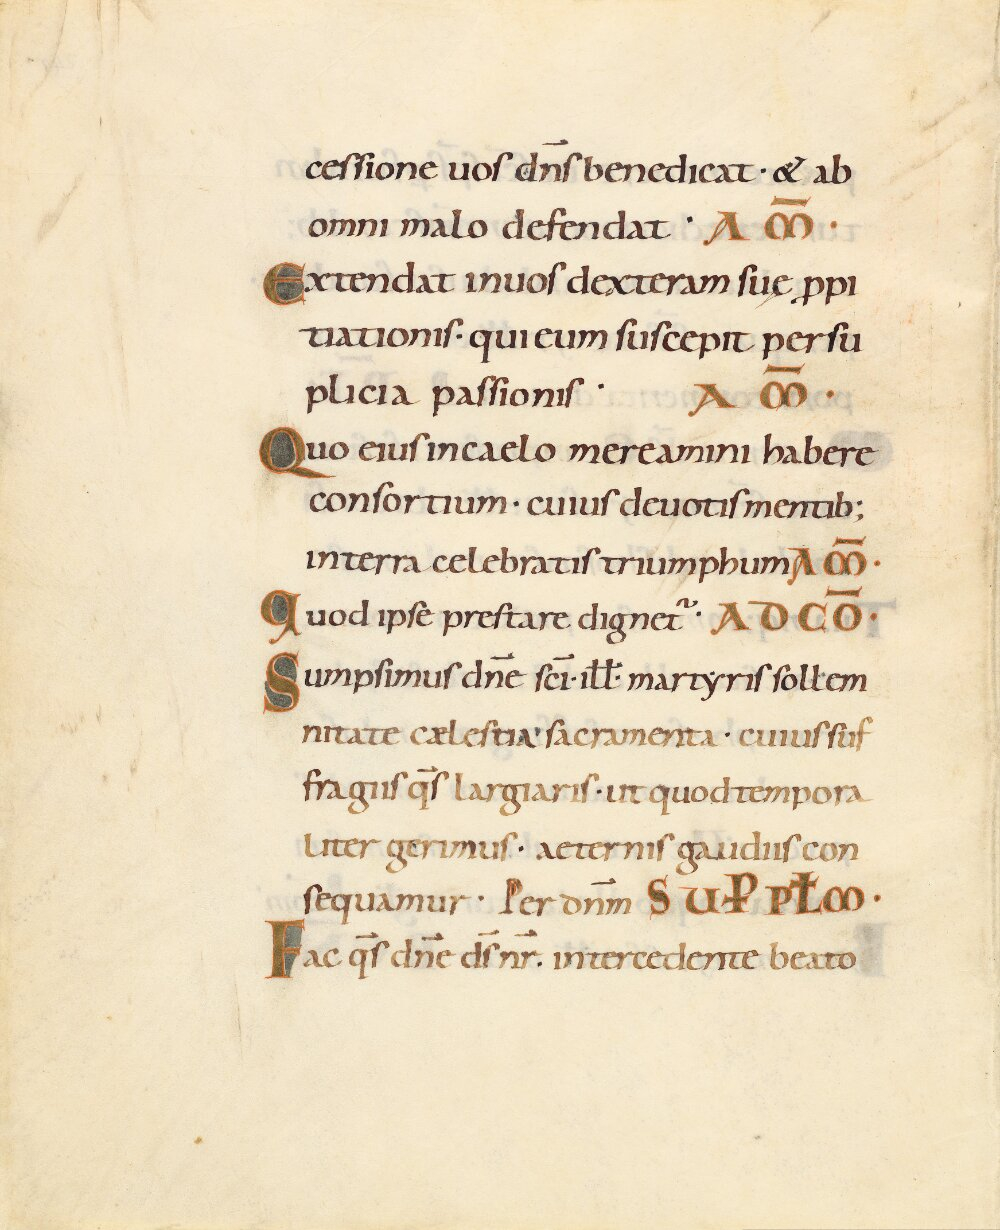 cessione uos dn̄s benedicat · & ab
omni malo defendat · A M̄ ·
Extendat in uos dexteram suę ꝓpi
tiationis · qui eum suscepit per su
plicia passionis · A M̄ ·
Quo eius in caelo mereamini habere
consortium · cuius deuotis mentib;
in terra celebratis triumphum A M̄ ·
quod ipse prestare dignet᷑ · A D C Ō ·
Sumpsimus dn̄e sc̄i · ill̵ · martyris sollem
nitate cælestia sacramenta · cuius suf
fragiis q̄s largiaris · ut quod tempora
liter gerimus · aeternis gaudiis con
sequamur · Per dn̄m S U P P L M ·
Fac q̄s dn̄e d̄s nr̄ · intercedente beato